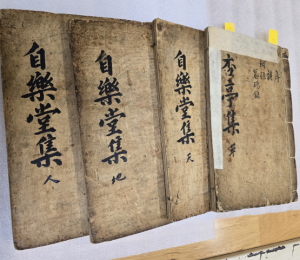 自樂堂集 人
自樂堂集 地
自樂堂集 天
杏亭集